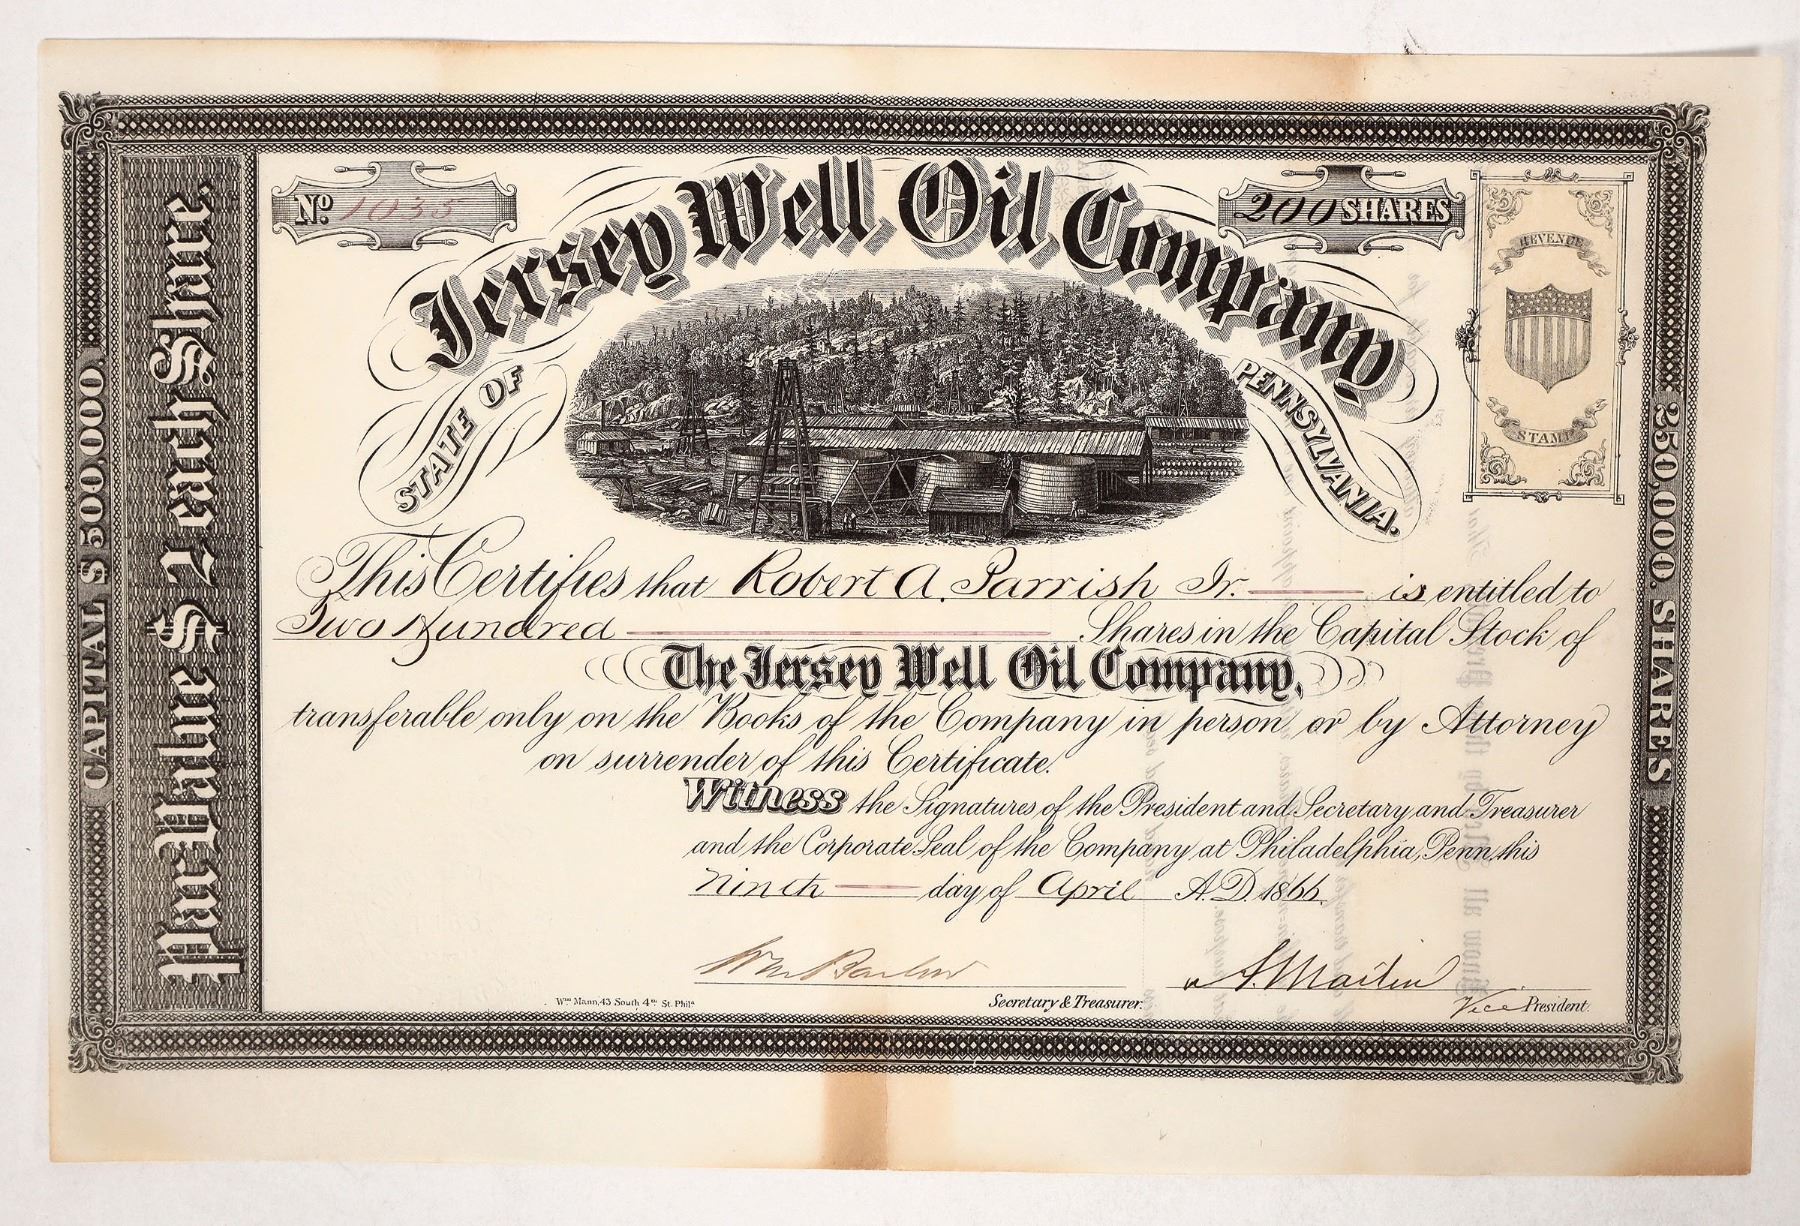 CAPITAL $ 500,000.
Par Value $ 2 each Share.
No. 1035
200 SHARES
Jersey Well Oil Company
STATE OF PENNSYLVANIA.
REVENUE
STAMP
250,000. SHARES
This Certifies that Robert A. Parrish Jr. is entitled to
Two Hundred Shares in the Capital Stock of
The Jersey Well Oil Company,
transferable only on the Books of the Company in person or by Attorney
on surrender of this Certificate.
Witness the Signatures of the President and Secretary and Treasurer
and the Corporate Seal of the Company at Philadelphia, Penn, this
Ninth day of April A.D. 1866.
Wm Barlow
S. Martin
Secretary & Treasurer.
Vice President.
Wm. Mann, 43 South 4th St. Phila